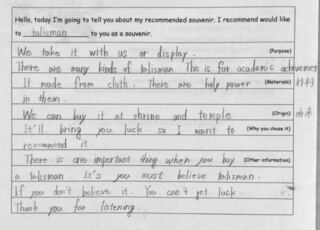 Hello, today I'm going to tell you about my recommended souvenir. I recommend would like
to talisman to you as a souvenir.
We take it with us or display. (Purpose)
There are many kinds of talisman. This is for academic achievement
It made from cloth. There are holy power (Materials) 材料
in them.
We can buy it at shrine and temple (Origin) 由来
It'll bring you luck. so I want to (Why you chose it)
recommend it.
There is one important thing when you buy (Other information)
a talisman. It's you must believe talisman.
If you don't believe it. You can't get luck.
Thank you for listening.